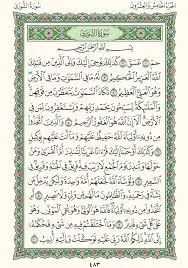 الجزء الخامس والعشرون
سورة الشورى
سورة الشورى
بِسْمِ اللَّهِ الرَّحْمَٰنِ الرَّحِيمِ
حمٓ ١ عٓسٓقٓ ٢ كَذَٰلِكَ يُوحِيٓ إِلَيْكَ وَإِلَى الَّذِينَ مِن قَبْلِكَ
اللَّهُ الْعَزِيزُ الْحَكِيمُ ٣ لَهُۥ مَا فِي السَّمَٰوَٰتِ وَمَا فِي الْأَرْضِ
وَهُوَ الْعَلِيُّ الْعَظِيمُ ٤ تَكَادُ السَّمَٰوَٰتُ يَتَفَطَّرْنَ مِن
فَوْقِهِنَّ وَالْمَلَٰٓئِكَةُ يُسَبِّحُونَ بِحَمْدِ رَبِّهِمْ وَيَسْتَغْفِرُونَ
لِمَن فِي الْأَرْضِ أَلَآ إِنَّ اللَّهَ هُوَ الْغَفُورُ الرَّحِيمُ ٥ وَالَّذِينَ
اتَّخَذُوا۟ مِن دُونِهِۦٓ أَوْلِيَآءَ اللَّهُ حَفِيظٌ عَلَيْهِمْ وَمَآ أَنتَ عَلَيْهِم
بِوَكِيلٍ ٦ وَكَذَٰلِكَ أَوْحَيْنَآ إِلَيْكَ قُرْءَانًا عَرَبِيًّا لِّتُنذِرَ أُمَّ الْقُرَىٰ وَمَنْ
حَوْلَهَا وَتُنذِرَ يَوْمَ الْجَمْعِ لَا رَيْبَ فِيهِ فَرِيقٌ فِي الْجَنَّةِ وَفَرِيقٌ فِي
السَّعِيرِ ٧ وَلَوْ شَآءَ اللَّهُ لَجَعَلَهُمْ أُمَّةً وَٰحِدَةً وَلَٰكِن يُدْخِلُ
مَن يَشَآءُ فِي رَحْمَتِهِۦ وَالظَّٰلِمُونَ مَا لَهُم مِّن وَلِيٍّ وَلَا نَصِيرٍ ٨
أَمِ اتَّخَذُوا۟ مِن دُونِهِۦٓ أَوْلِيَآءَ فَاللَّهُ هُوَ الْوَلِيُّ وَهُوَ يُحْيِ الْمَوْتَىٰ وَهُوَ
عَلَىٰ كُلِّ شَيْءٍ قَدِيرٌ ٩ وَمَا اخْتَلَفْتُمْ فِيهِ مِن شَيْءٍ فَحُكْمُهُۥٓ
إِلَى اللَّهِ ذَٰلِكُمُ اللَّهُ رَبِّي عَلَيْهِ تَوَكَّلْتُ وَإِلَيْهِ أُنِيبُ ١٠
٤٨٣